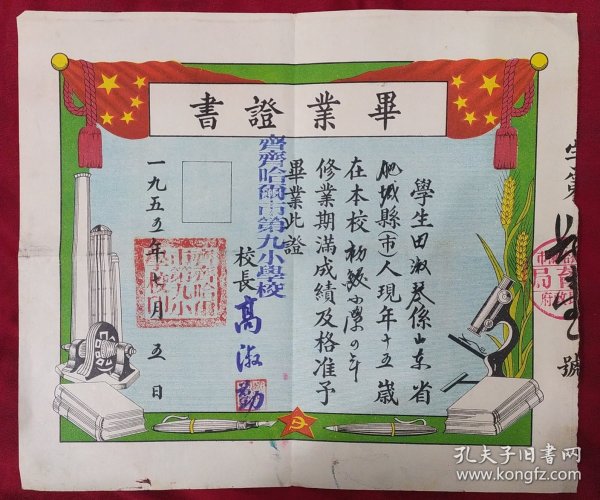 書證業畢
學生田淑琴係山東省
肥城縣(市)人現年十五歲
在本校初級小學四年
修業期滿成績及格准予
畢業此證
齊齊哈爾市第九小學校
校長 高淑勤
一九五五年七月五日
字第
號
孔夫子旧书网
www.kongfz.com